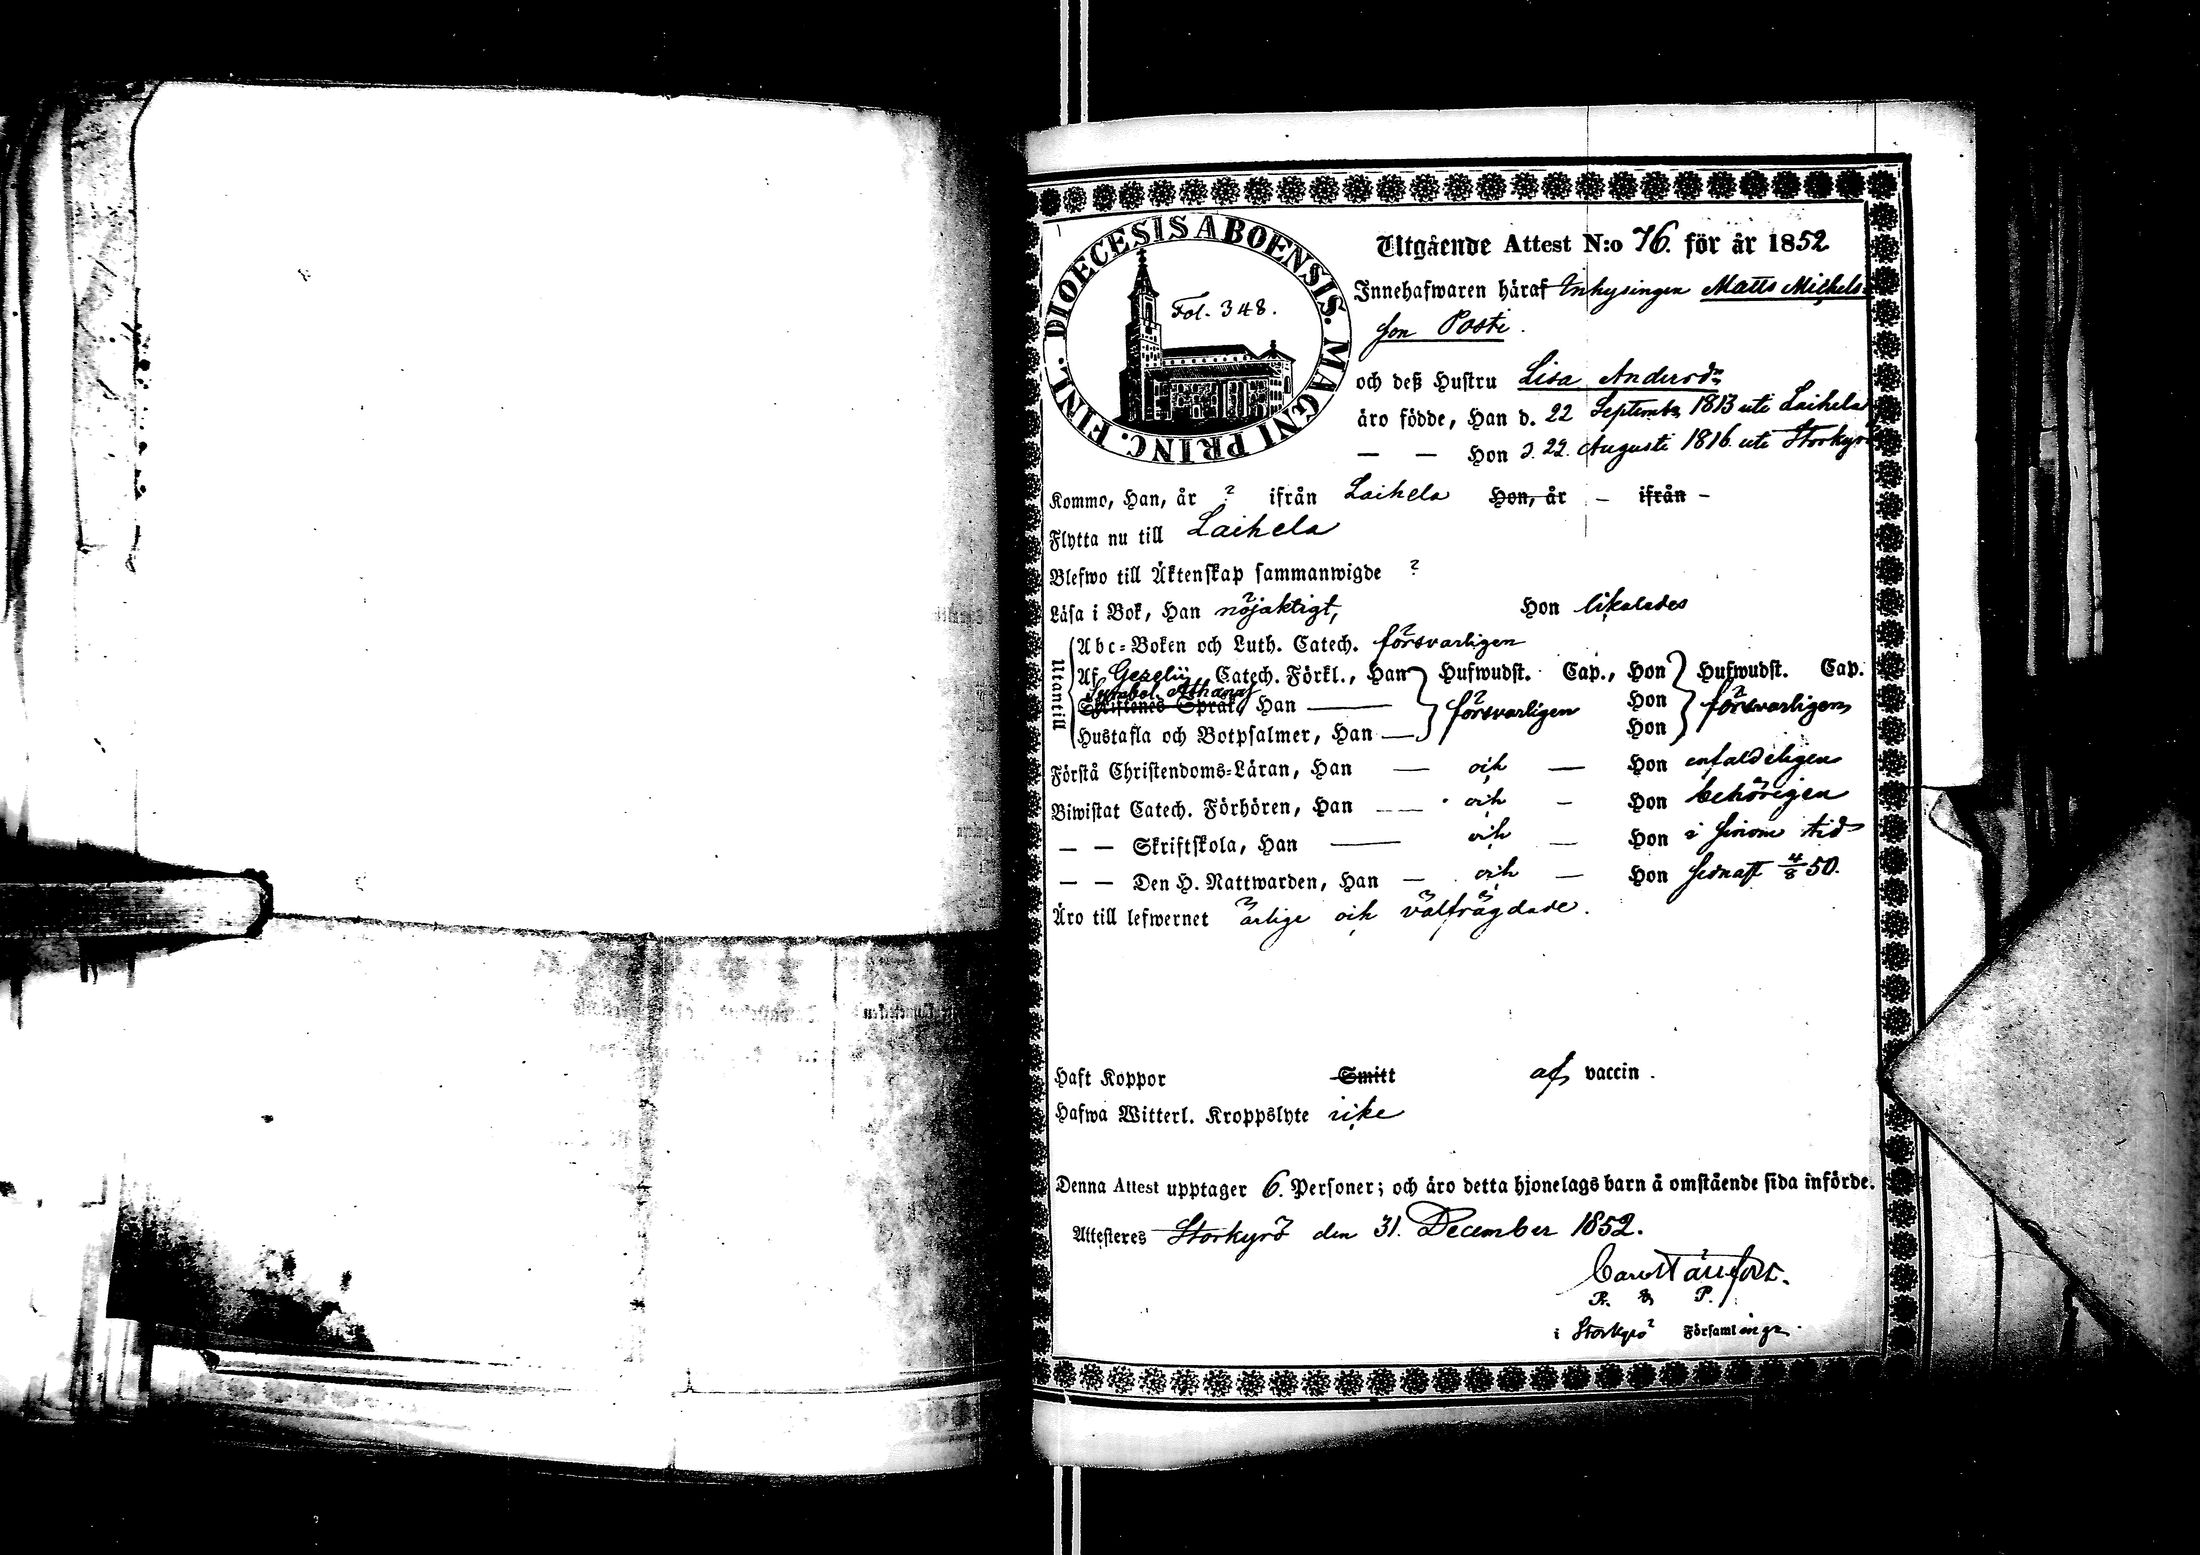 DIOECESIS ABOENSIS. MAGNI PRINC. FINL.
Fol. 348.
Utgående Attest N:o 76. för år 1852
Innehafwaren häraf Inhysingen Matts Michels-
son Posti.
och deß Hustru Lisa Andersdr
äro födde, Han d. 22 September 1813 uti Laihela
— — Hon d. 22. Augusti 1816 uti Storkyrö
Kommo, Han, år ? ifrån Laihela Hon, år – ifrån –
Flytta nu till Laihela
Blefwo till Äktenskap sammanwigde ?
Läsa i Bok, Han nöjaktigt, Hon likaledes
Utantill
Abc-Boken och Luth. Catech. försvarligen
Af Gezelii Catech. Förkl., Han Hufwudst. Cap., Hon Hufwudst. Cap.
Symbol. Athanas
Skriftenes Språk, Han — försvarligen Hon försvarligen
Hustafla och Botpsalmer, Han — Hon
Förstå Christendoms-Läran, Han — och — Hon enfaldeligen
Biwistat Catech. Förhören, Han — och — Hon behörigen
— — Skriftskola, Han — och — Hon i sinom tid
— — Den H. Nattwarden, Han — och — Hon sednast 4/8 50.
Äro till lefwernet ärlige och välfrägdade.
Haft Koppor Smitt af vaccin.
Hafwa Witterl. Kroppslyte icke
Denna Attest upptager 6. Personer; och äro detta hjonelags barn å omstående sida införde.
Attesteres Storkyrö den 31. December 1852.
P.
i Storkyrö Församlingr.